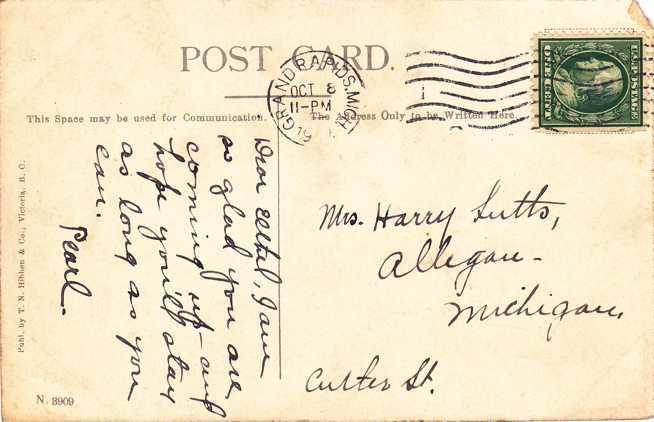 POST CARD.
GRAND RAPIDS, MICH
OCT 8
11-PM
19
U.S. POSTAGE
ONE CENT
This Space may be used for Communication.
The Address Only to be Written Here.
Dear Ethel, I am
so glad you are
coming up - and
hope you'll stay
as long as you
can.
Pearl.
Mrs. Harry Lutts,
Allegan -
Michigan,
Cutler St.
Publ. by T. N. Hibben & Co., Victoria, B. C.
N. 3909